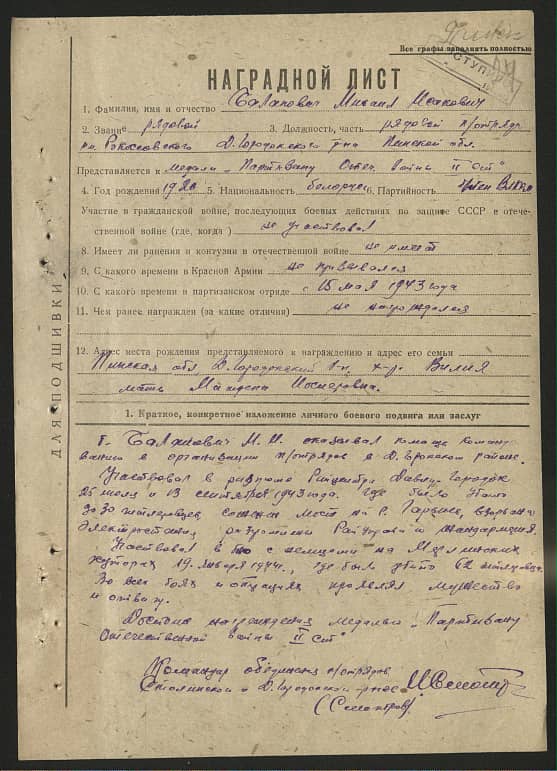 Все графы заполнять полностью
НАГРАДНОЙ ЛИСТ
1. Фамилия, имя и отчество Балахович Михаил
2. Звание рядовой 3. Должность, часть рядовой п/отряда
им. Рокоссовского Д. Городокского р-на Пинской обл.
Представляется к медали „Партизану Отеч. Войны II ст"
4. Год рождения 5. Национальность белорус 6. Партийность член ВЛКСМ
Участие в гражданской войне, последующих боевых действиях по защите СССР в отече-
ственной войне (где, когда) не участвовал
8. Имеет ли ранения и контузии в отечественной войне не имеет
9. С какого времени в Красной Армии не призывался
10. С какого времени в партизанском отряде с 15 мая 1943 года
11. Чем ранее награжден (за какие отличия) не награждался
12. Адрес места рождения представляемого к награждению и адрес его семьи
Пинская обл, Д. Городокский р-н, х-р Вилия
мать
1. Краткое, конкретное изложение личного боевого подвига или заслуг
т. Балахович М. И. оказывал помощь командо-
ванию в организации п/отрядов в Д. районе.
Участвовал в разгроме Райцентра Давид-Городок
25 июля и 13 сентября 1943 года. Где было убито
до 30 сожжен мост на р. Горынь, взорвана
электростанция, разгромлены и жандармерия.
Участвовал в бою с немцами на
хуторах 19 января 1944 г., где было убито 62
Во всех боях и операциях проявлял мужество
и отвагу.
Достоин награждения медалью „Партизану
Отечественной Войны II ст"
Командир п/отрядов
Столинского и Д. Городокского р-нов
ДЛЯ ПОДШИВКИ